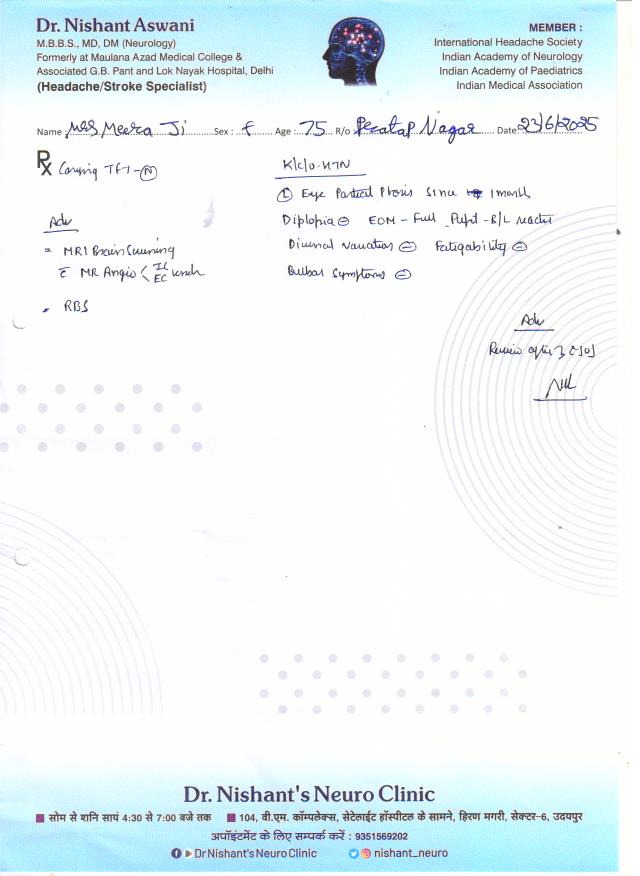 Dr. Nishant Aswani
M.B.B.S., MD, DM (Neurology)
Formerly at Maulana Azad Medical College &
Associated G.B. Pant and Lok Nayak Hospital, Delhi
(Headache/Stroke Specialist)
MEMBER :
International Headache Society
Indian Academy of Neurology
Indian Academy of Paediatrics
Indian Medical Association
Name Mrs Meera Ji Sex : F Age : 75 R/o Pratap Nagar Date 23/6/2025
Rx
TFT - (N)
K/c/o - HTN
(L) Eye Partial Ptosis since 1 month
Diplopia ⊖ EOM - Full Pupil - B/L
Diurnal Variation ⊖ Fatigability ⊖
Bulbar Symptoms ⊖
Adv
MRI Brain Screening
c̄ MR Angio < IC EC
RBS
Adv
Review after 3
Dr. Nishant's Neuro Clinic
सोम से शनि सायं 4:30 से 7:00 बजे तक 104, वी.एम. कॉम्पलेक्स, सेटेलाईट हॉस्पीटल के सामने, हिरण मगरी, सेक्टर-6, उदयपुर
अपॉइंटमेंट के लिए सम्पर्क करें : 9351569202
Dr Nishant's Neuro Clinic nishant_neuro